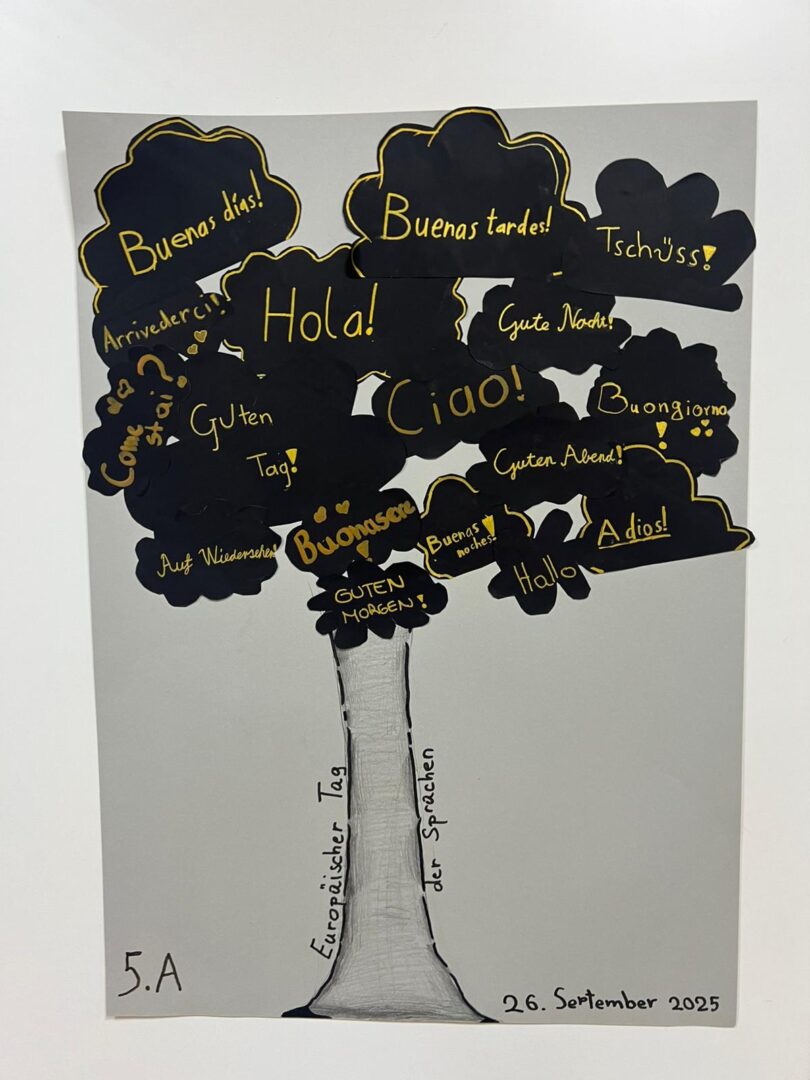 Buenas días!
Buenas tardes!
Tschüss!
Arrivederci!
Hola!
Gute Nacht!
Come
stai?
Guten
Tag!
Ciao!
Buongiorno
!
Guten Abend!
Auf Wiedersehen!
Buonasera
!
Buenas
noches!
Adios!
Hallo
GUTEN
MORGEN!
Europäischer Tag
der Sprachen
5.A
26. September 2025